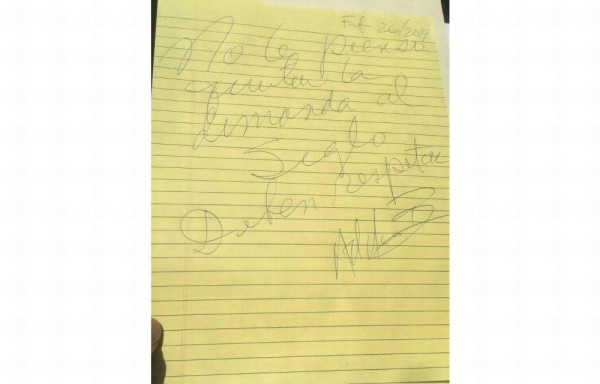 Feb 26/2019
No le pienso
quitar la
demanda al
Siglo
Deben respetar